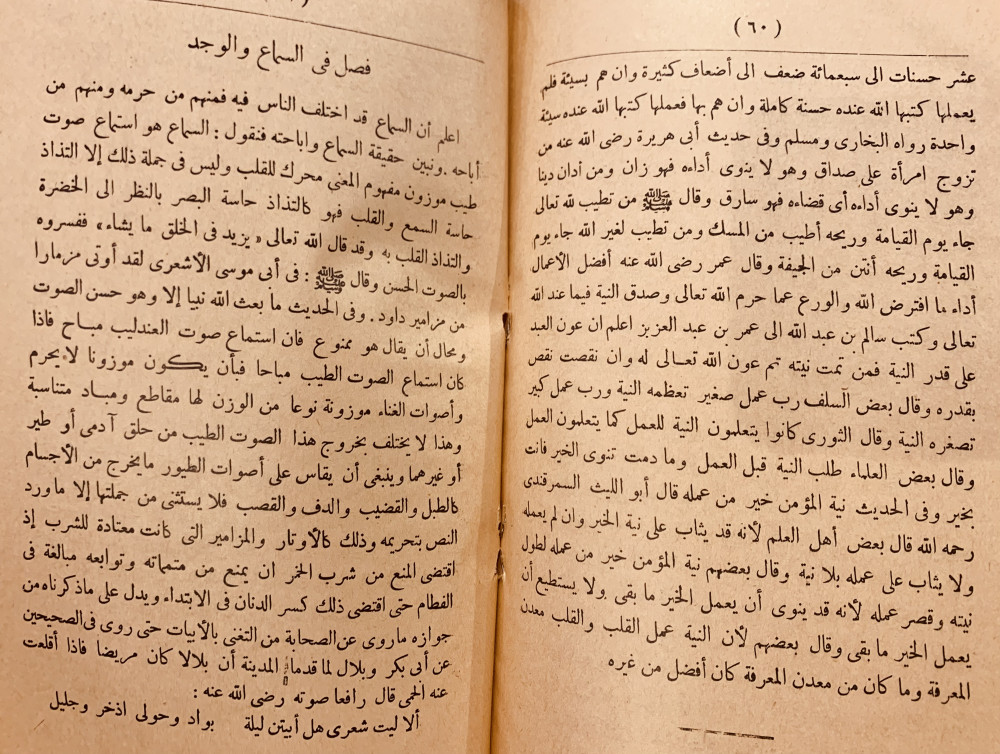 (٦٠)
عشر حسنات الى سبعمائة ضعف الى أضعاف كثيرة وان هم بسيئة فلم
يعملها كتبها الله عنده حسنة كاملة وان هم بها فعملها كتبها الله عنده سيئة
واحدة رواه البخارى ومسلم وفى حديث أبى هريرة رضى الله عنه من
تزوج امرأة على صداق وهو لا ينوى أداءه فهو زان ومن أدان دينا
وهو لا ينوى أداءه أى قضاءه فهو سارق وقال ﷺ من تطيب لله تعالى
جاء يوم القيامة وريحه أطيب من المسك ومن تطيب لغير الله جاء يوم
القيامة وريحه أنتن من الجيفة وقال عمر رضى الله عنه أفضل الأعمال
أداء ما افترض الله والورع عما حرم الله تعالى وصدق النية فيما عند الله
تعالى وكتب سالم بن عبد الله الى عمر بن عبد العزيز اعلم ان عون العبد
على قدر النية فمن تمت نيته تم عون الله تعالى له وان نقصت نقص
بقدره وقال بعض السلف رب عمل صغير تعظمه النية ورب عمل كبير
تصغره النية وقال الثورى كانوا يتعلمون النية للعمل كما يتعلمون العمل
وقال بعض العلماء طلب النية قبل العمل وما دمت تنوى الخير فانت
بخير وفى الحديث نية المؤمن خير من عمله قال أبو الليث السمرقندى
رحمه الله قال بعض أهل العلم لأنه قد يثاب على نية الخير وان لم يعمله
ولا يثاب على عمله بلا نية وقال بعضهم نية المؤمن خير من عمله لطول
نيته وقصر عمله لأنه قد ينوى أن يعمل الخير ما بقى ولا يستطيع أن
يعمل الخير ما بقى وقال بعضهم لأن النية عمل القلب والقلب معدن
المعرفة وما كان من معدن المعرفة كان أفضل من غيره
فصل فى السماع والوجد
اعلم أن السماع قد اختلف الناس فيه فمنهم من حرمه ومنهم من
أباحه. ونبين حقيقة السماع واباحته فنقول : السماع هو استماع صوت
طيب موزون مفهوم المعنى محرك للقلب وليس فى جملة ذلك إلا التذاذ
حاسة السمع والقلب فهو كالتذاذ حاسة البصر بالنظر الى الخضرة
والتذاذ القلب به وقد قال الله تعالى «يزيد فى الخلق ما يشاء» ففسروه
بالصوت الحسن وقال ﷺ : فى أبى موسى الأشعرى لقد أوتى مزمارا
من مزامير داود. وفى الحديث ما بعث الله نبيا إلا وهو حسن الصوت
ومحال أن يقال هو ممنوع فان استماع صوت العندليب مباح فاذا
كان استماع الصوت الطيب مباحا فبأن يكون موزونا لا يحرم
وأصوات الغناء موزونة نوعا من الوزن لها مقاطع ومباد متناسبة
وهذا لا يختلف بخروج هذا الصوت الطيب من حلق آدمى أو طير
أو غيرهما وينبغى أن يقاس على أصوات الطيور ما يخرج من الأجسام
كالطبل والقضيب والدف والقصب فلا يستثنى من جملتها إلا ما ورد
النص بتحريمه وذلك كالأوتار والمزامير التى كانت معتادة للشرب إذ
اقتضى المنع من شرب الخمر ان يمنع من متمماته وتوابعه مبالغة فى
الفطام حتى اقتضى ذلك كسر الدنان فى الابتداء ويدل على ماذكرناه من
جوازه ماروى عن الصحابة من التغنى بالأبيات حتى روى فى الصحيحين
عن أبى بكر وبلال لما قدما المدينة أن بلالا كان مريضا فاذا أقلعت
عنه الحمى قال رافعا صوته رضى الله عنه :
ألا ليت شعرى هل أبيتن ليلة بواد وحولى اذخر وجليل